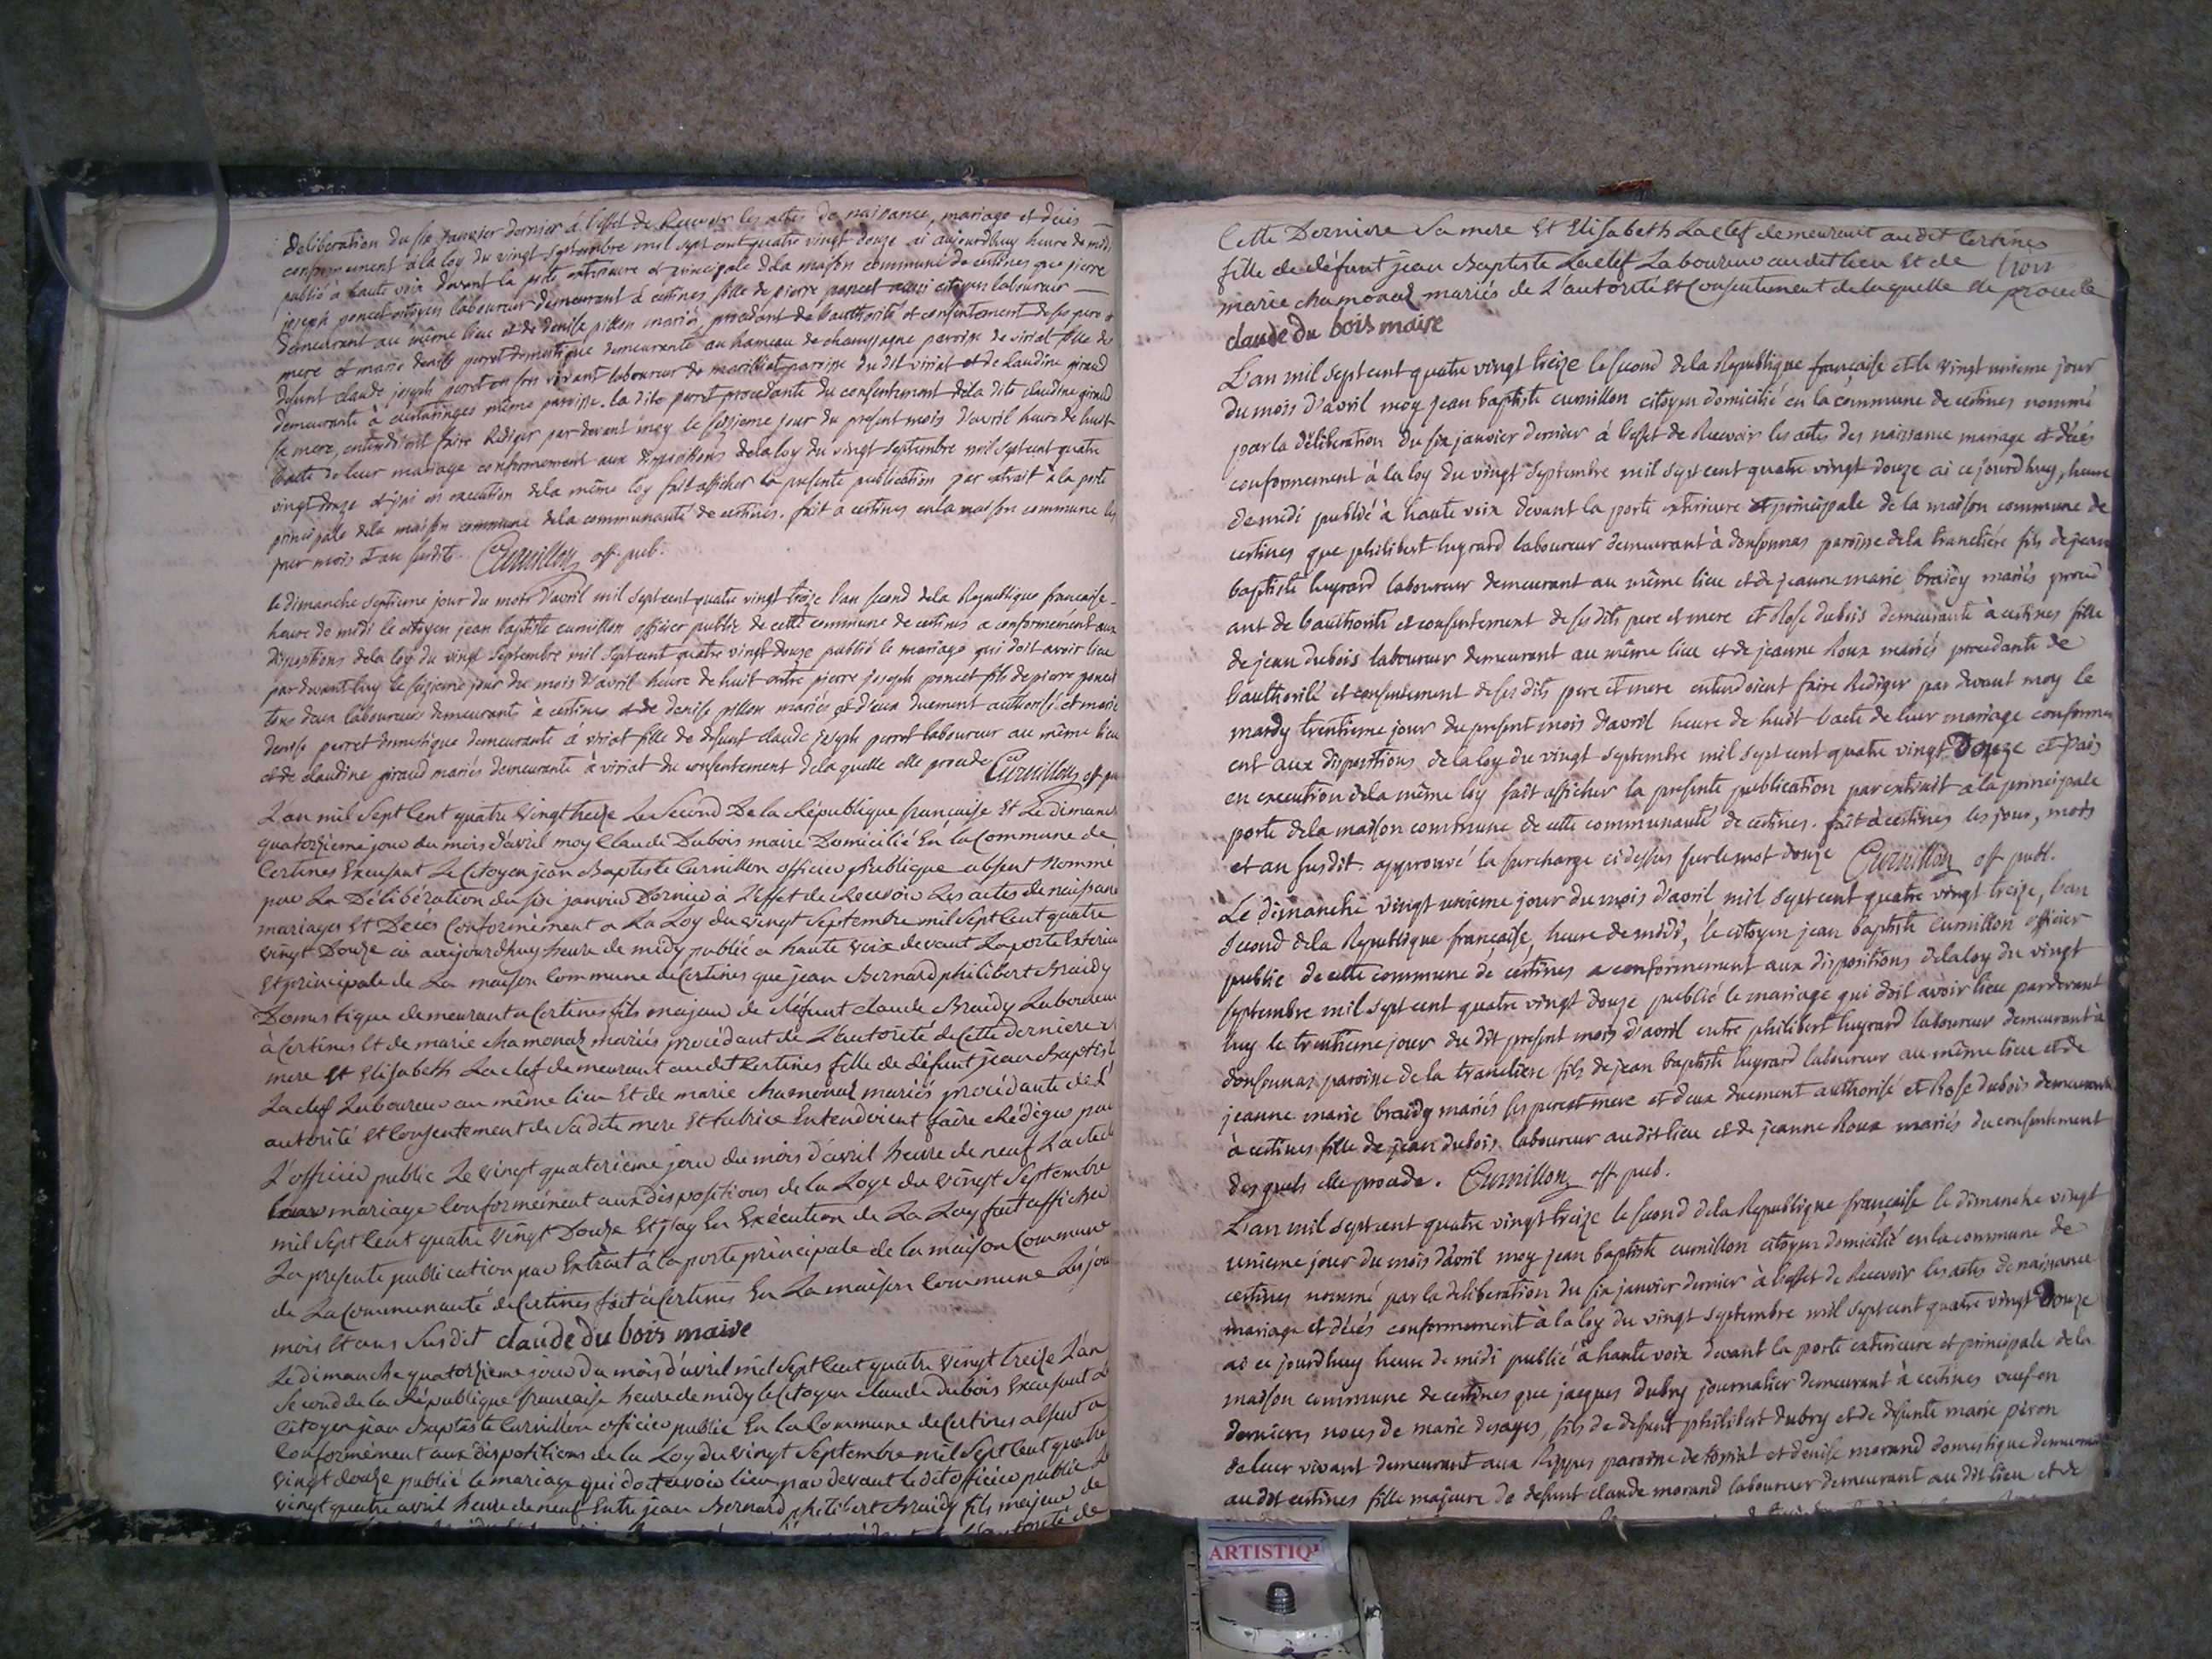 deliberation du six janvier dernier à l'effet de Recevoir les actes de naissance, mariage et décès
conformement à la loy du vingt septembre mil sept cent quatre vingt douze ai aujourdhuy heure de midi
publié à haute voix devant la porte exterieure et principale dela maison commune de certines que pierre
joseph poncet citoyen laboureur demeurant à certines fils de pierre poncet aussi citoyen laboureur
demeurant au même lieu et de denise pillon mariés procedant de l'authorité et consentement de ses pere et
mere et marie denise perret domestique demeurante au hameau de champagne paroisse de viriat fille de
defunt claude joseph perret en son vivant laboureur de paroisse du dit viriat et de claudine giraud
demeurante à même paroisse. la dite perret procedante du consentement dela dite claudine giraud
sa mere, entendoient faire Rediger par devant moy le seizieme jour du present mois d'avril heure de huit
l'acte de leur mariage conformement aux dispositions dela loy du vingt septembre mil sept cent quatre
vingt douze et j'ai en execution dela même loy fait afficher la presente publication par extrait à la porte
principale dela maison commune dela communauté de certines. fait à certines en la maison commune les
jour mois et an susdits. Curnillon off. pub.
le dimanche septieme jour du mois d'avril mil sept cent quatre vingt treize l'an second dela Republique francaise
heure de midi le citoyen jean baptiste curnillon officier public de cette commune de certines a conformément aux
dispositions dela loy du vingt septembre mil sept cent quatre vingt douze publié le mariage qui doit avoir lieu
par devant luy le seizieme jour du mois d'avril heure de huit entre pierre joseph poncet fils de pierre poncet
tous deux laboureurs demeurants à certines et de denise pillon mariés et d'eux duement authorisé et marie
denise perret domestique demeurante à viriat fille de defunt claude joseph perret laboureur au même lieu
et de claudine giraud mariés demeurante à viriat du consentement dela quelle elle procede Curnillon off pu
L'an mil Sept Cent quatre Vingt treize Le Second De la République francaise Et Le dimanc
quatorzieme jour du mois d'avril moy Claude Dubois maire Domicilié En la Commune de
Certines Excusant Le Citoyen jean Baptiste Curnillon officier publique absent Nommé
par La Délibération du six janvier Dernier à L'effet de Recevoir Les actes de naissance
mariages Et Décès Conformément a La Loy du vingt Septembre mil Sept Cent quatre
vingt Douze ai aujourdhuy heure de midy publié a haute voix devant La porte Exterieu
Et principale de La maison Commune de Certines que jean Bernard philibert Braidy
Domestique demeurant a Certines fils majeur de défunt claude Braidy Laboureur
à Certines Et de marie chamonal mariés procédant de L'autorité de Cette derniere sa
mere Et Elisabeth Laclef demeurant audit Certines fille de défunt jean Baptist
Laclef Laboureur au même lieu Et de marie chamonal mariés procédante de L'
autorité Et Consentement de Sa dite mere Et tutrice Entendoient faire Rédiger par
L'officier public Le vingt quatrieme jour du mois d'avril heure de neuf L'acte de
leur mariage Conformément aux dispositions de la Loye du vingt Septembre
mil Sept Cent quatre Vingt Douze Et j'ay En Exécution de La Loy fait afficher
La presente publication par Extrait à la porte principale de la maison Commune
de La Communauté de Certines fait à Certines En La maison Commune Les jou
mois Et ans Susdit claude du bois maire
Le dimanche quatorzieme jour du mois d'avril mil Sept Cent quatre Vingt treize L'an
Second de la République francaise heure de midy le Citoyen claude dubois Excusant Le
Citoyen jean Baptiste Curnillon officier public En la Commune de Certines absent a
Conformément aux dispositions de la Loy du vingt Septembre mil Sept Cent quatre
Vingt douze publié le mariage qui doit avoir lieu par devant le dit officier public Le
vingt quatre avril heure de neuf Entre jean Bernard philibert Braidy fils majeur de
l'autorité de
Cette Derniere Sa mere Et Elisabeth Laclef demeurant audit Certines
fille de défunt jean Baptiste Laclef Laboureur audit lieu Et de
trois
marie chamonal mariés de L'autorité Et Consentement de laquelle Elle procede
claude du bois maire
L'an mil sept cent quatre vingt treize le second dela Republique francaise et le vingt unieme jour
du mois d'avril moy jean baptiste curnillon citoyen domicilié en la commune de certines nommé
par la déliberation du six janvier dernier à l'effet de Recevoir les actes des naissance mariage et décès
conformement à la loy du vingt septembre mil sept cent quatre vingt douze ai ce jourdhuy, heure
de midi publié à haute voix devant la porte exterieure et principale de la maison commune de
certines que philibert hugrard laboureur demeurant à donsonnas paroisse dela tranclière fils de jean
baptiste hugrard laboureur demeurant au même lieu et de jeanne marie braidy mariés proced
ant de l'authorité et consentement de ses dits pere et mere et Rose dubois demeurante à certines fille
de jean dubois laboureur demeurant au même lieu et de jeanne Roux mariés procedante de
l'authorité et consentement de ses dits pere et mere entendoient faire Rediger par devant moy le
mardy trentieme jour du present mois d'avril heure de huit l'acte de leur mariage conformem
ent aux dispositions de la loy du vingt septembre mil sept cent quatre vingt Douze et j'ais
en execution dela même loy fait afficher la presente publication par extrait a la principale
porte dela maison commune de cette communauté de certines. fait à certines les jour, mois
et an susdit. approuvé la surcharge ci dessus sur le mot douze Curnillon off publ.
Le dimanche vingt unieme jour du mois d'avril mil sept cent quatre vingt treize, l'an
second dela Republique francaise, heure de midi, le citoyen jean baptiste curnillon officier
public de cette commune de certines a conformement aux dispositions dela loy du vingt
septembre mil sept cent quatre vingt douze publié le mariage qui doit avoir lieu pardevant
luy le trentieme jour du dit present mois d'avril entre philibert hugrard laboureur demeurant à
donsonnas paroisse de la tranclière fils de jean baptiste hugrard laboureur au même lieu et de
jeanne marie braidy mariés ses pere et mere et d'eux duement authorisé et Rose dubois demeurante
à certines fille de jean dubois laboureur au dit lieu et de jeanne Roux mariés du consentement
desquels elle procede. Curnillon off pub.
L'an mil sept cent quatre vingt treize le second dela Republique française le dimanche vingt
unieme jour du mois d'avril moy jean baptiste curnillon citoyen domicilié en la commune de
certines nommé par la deliberation du six janvier dernier à l'effet de Recevoir les actes de naissance
mariage et décés conformement à la loy du vingt septembre mil sept cent quatre vingt Douze
ai ce jourdhuy heure de midi publié à haute voix devant la porte exterieure et principale de la
maison commune de certines que jacques dubry journalier demeurant à certines veuf en
dernieres noces de marie desages, fils de defunt philibert dubry et de defunte marie piron
de leur vivant demeurant aux Rippes paroisse de et denise morand domestique demeurant
au dit certines fille majeure de defunt claude morand laboureur demeurant au dit lieu et de
ARTISTIQ